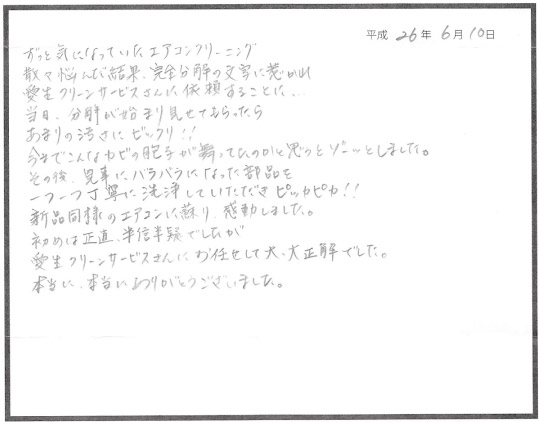 平成 26年 6月 10日
ずっと気になっていたエアコンクリーニング
散々悩んだ結果、完全分解の文字に惹かれ
愛生クリーンサービスさんに依頼することに…
当日、分解が始まり見せてもらったら
あまりの汚さにビックリ!!
今までこんなカビの胞子が舞ってたのかと思うとゾーッとしました。
その後、見事にバラバラになった部品を
一つ一つ丁寧に洗浄していただきピッカピカ!!
新品同様のエアコンに蘇り、感動しました。
初めは正直、半信半疑でしたが
愛生クリーンサービスさんにお任せして大、大正解でした。
本当に、本当にありがとうございました。